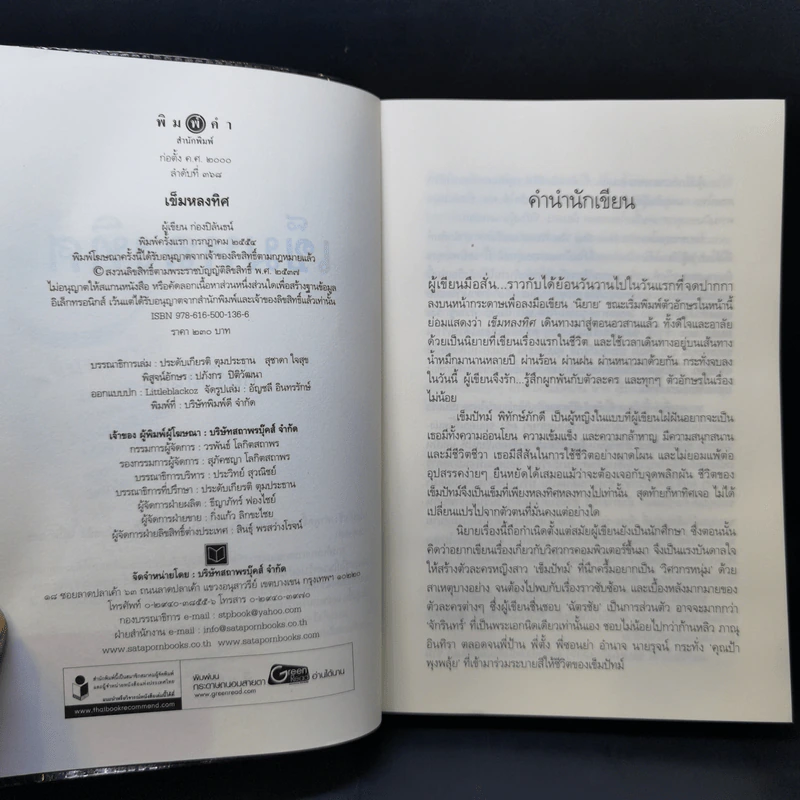 พิมพ์คำ
สำนักพิมพ์
ก่อตั้ง ค.ศ. ๒๐๐๐
ลำดับที่ ๓๖๘
เข็มหลงทิศ
ผู้เขียน ก่องปิลันธน์
พิมพ์ครั้งแรก กรกฎาคม ๒๕๕๔
พิมพ์โฆษณาครั้งนี้ได้รับอนุญาตจากเจ้าของลิขสิทธิ์ตามกฎหมายแล้ว
© สงวนลิขสิทธิ์ตามพระราชบัญญัติลิขสิทธิ์ พ.ศ. ๒๕๓๗
ไม่อนุญาตให้สแกนหนังสือ หรือคัดลอกเนื้อหาส่วนหนึ่งส่วนใดเพื่อสร้างฐานข้อมูล
อิเล็กทรอนิกส์ เว้นแต่ได้รับอนุญาตจากสำนักพิมพ์และเจ้าของลิขสิทธิ์แล้วเท่านั้น
ISBN 978-616-500-136-6
ราคา ๒๓๐ บาท
บรรณาธิการเล่ม : ประดับเกียรติ ตุมประธาน สุชาดา ใจสุข
พิสูจน์อักษร : ปภังกร ปิติวัฒนา
ออกแบบปก : Littleblackoz จัดรูปเล่ม : อัญชลี อินทรรักษ์
พิมพ์ที่ : บริษัทพิมพ์ดี จำกัด
เจ้าของ ผู้พิมพ์ผู้โฆษณา : บริษัทสถาพรบุ๊คส์ จำกัด
กรรมการผู้จัดการ : วรพันธ์ โลกิตสถาพร
รองกรรมการผู้จัดการ : สุภัคชญา โลกิตสถาพร
บรรณาธิการบริหาร : ประวิทย์ สุวณิชย์
บรรณาธิการที่ปรึกษา : ประดับเกียรติ ตุมประธาน
ผู้จัดการฝ่ายผลิต : ธีญาภัทร์ ฟองไชย์
ผู้จัดการฝ่ายขาย : กิ่งแก้ว ลิกขะไชย
ผู้จัดการฝ่ายลิขสิทธิ์ต่างประเทศ : สินธุ์ พรสว่างโรจน์
จัดจำหน่ายโดย : บริษัทสถาพรบุ๊คส์ จำกัด
๑๘ ซอยลาดปลาเค้า ๖๓ ถนนลาดปลาเค้า แขวงอนุสาวรีย์ เขตบางเขน กรุงเทพฯ ๑๐๒๒๐
โทรศัพท์ ๐-๒๙๔๐-๓๘๕๕-๖ โทรสาร ๐-๒๙๔๐-๓๙๗๐
กองบรรณาธิการ e-mail : stpbook@yahoo.com
ฝ่ายสำนักงาน e-mail : info@satapornbooks.com
www.satapornbooks.com www.satapornbooks.co.th
สำนักพิมพ์นี้เป็นสมาชิกสมาคมผู้จัดพิมพ์
และผู้จำหน่ายหนังสือแห่งประเทศไทย
www.thaibookrecommend.com
พิมพ์บน
กระดาษถนอมสายตา
www.greenread.com
Green Read
อ่านได้นาน
คำนำนักเขียน
ผู้เขียนมือสั่น...ราวกับได้ย้อนวันวานไปในวันแรกที่จดปากกา
ลงบนหน้ากระดาษเพื่อลงมือเขียน 'นิยาย' ขณะเริ่มพิมพ์ตัวอักษรในหน้านี้
ย่อมแสดงว่า เข็มหลงทิศ เดินทางมาสู่ตอนอวสานแล้ว ทั้งดีใจและอาลัย
ด้วยเป็นนิยายที่เขียนเรื่องแรกในชีวิต และใช้เวลาเดินทางอยู่บนเส้นทาง
น้ำหมึกมานานหลายปี ผ่านร้อน ผ่านฝน ผ่านหนาวมาด้วยกัน กระทั่งจบลง
ในวันนี้ ผู้เขียนจึงรัก...รู้สึกผูกพันกับตัวละคร และทุกๆ ตัวอักษรในเรื่อง
ไม่น้อย
เข็มปัทม์ พิทักษ์ภักดี เป็นผู้หญิงในแบบที่ผู้เขียนใฝ่ฝันอยากจะเป็น
เธอมีทั้งความอ่อนโยน ความเข้มแข็ง และความกล้าหาญ มีความสนุกสนาน
และมีชีวิตชีวา เธอมีสีสันในการใช้ชีวิตอย่างผาดโผน และไม่ยอมแพ้ต่อ
อุปสรรคง่ายๆ ยืนหยัดได้เสมอแม้ว่าจะต้องเจอกับจุดพลิกผัน ชีวิตของ
เข็มปัทม์จึงเป็นเข็มที่เพียงหลงทิศหลงทางไปเท่านั้น สุดท้ายก็หาทิศเจอ ไม่ได้
เปลี่ยนแปรไปจากตัวตนที่มั่นคงแต่อย่างใด
นิยายเรื่องนี้ถือกำเนิดตั้งแต่สมัยผู้เขียนยังเป็นนักศึกษา ซึ่งตอนนั้น
คิดว่าอยากเขียนเรื่องเกี่ยวกับวิศวกรคอมพิวเตอร์ขึ้นมา จึงเป็นแรงบันดาลใจ
ให้สร้างตัวละครหญิงสาว 'เข็มปัทม์' ที่ฝากรี้มอยากเป็น 'วิศวกรหนุ่ม' ด้วย
สาเหตุบางอย่าง จนต้องไปพบกับเรื่องราวซับซ้อน และเบื้องหลังมากมายของ
ตัวละครต่างๆ ซึ่งผู้เขียนชื่นชอบ 'ฉัตรชัย' เป็นการส่วนตัว อาจจะมากกว่า
'จักรินทร์' ที่เป็นพระเอกนิดเดียวเท่านั้นเอง ชอบไม่น้อยไปกว่าก้านหลิว ภาณุ
อินทิรา ตลอดจนพี่ป้าน พี่ตั้ง พี่ซอนย่า อำนาจ นายรุจน์ กระทั่ง 'คุณป้า
พุงพลุ้ย' ที่เข้ามาร่วมระบายสีให้ชีวิตของเข็มปัทม์